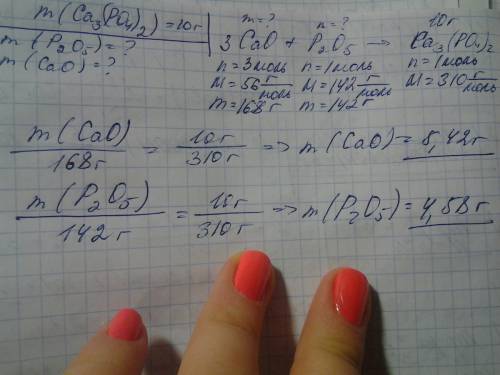 m(Ca₃(PO₄)₂)=10г
m(P₂O₅)=?
m(CaO)=?
m=? n=? 10г
3CaO + P₂O₅ → Ca₃(PO₄)₂
n=3моль n=1моль n=1моль
M=56 г/моль M=142 г/моль M=310 г/моль
m=168г m=142г
m(CaO)/168г = 10г/310г => m(CaO)=5,42г
m(P₂O₅)/142г = 10г/310г => m(P₂O₅)=4,58г